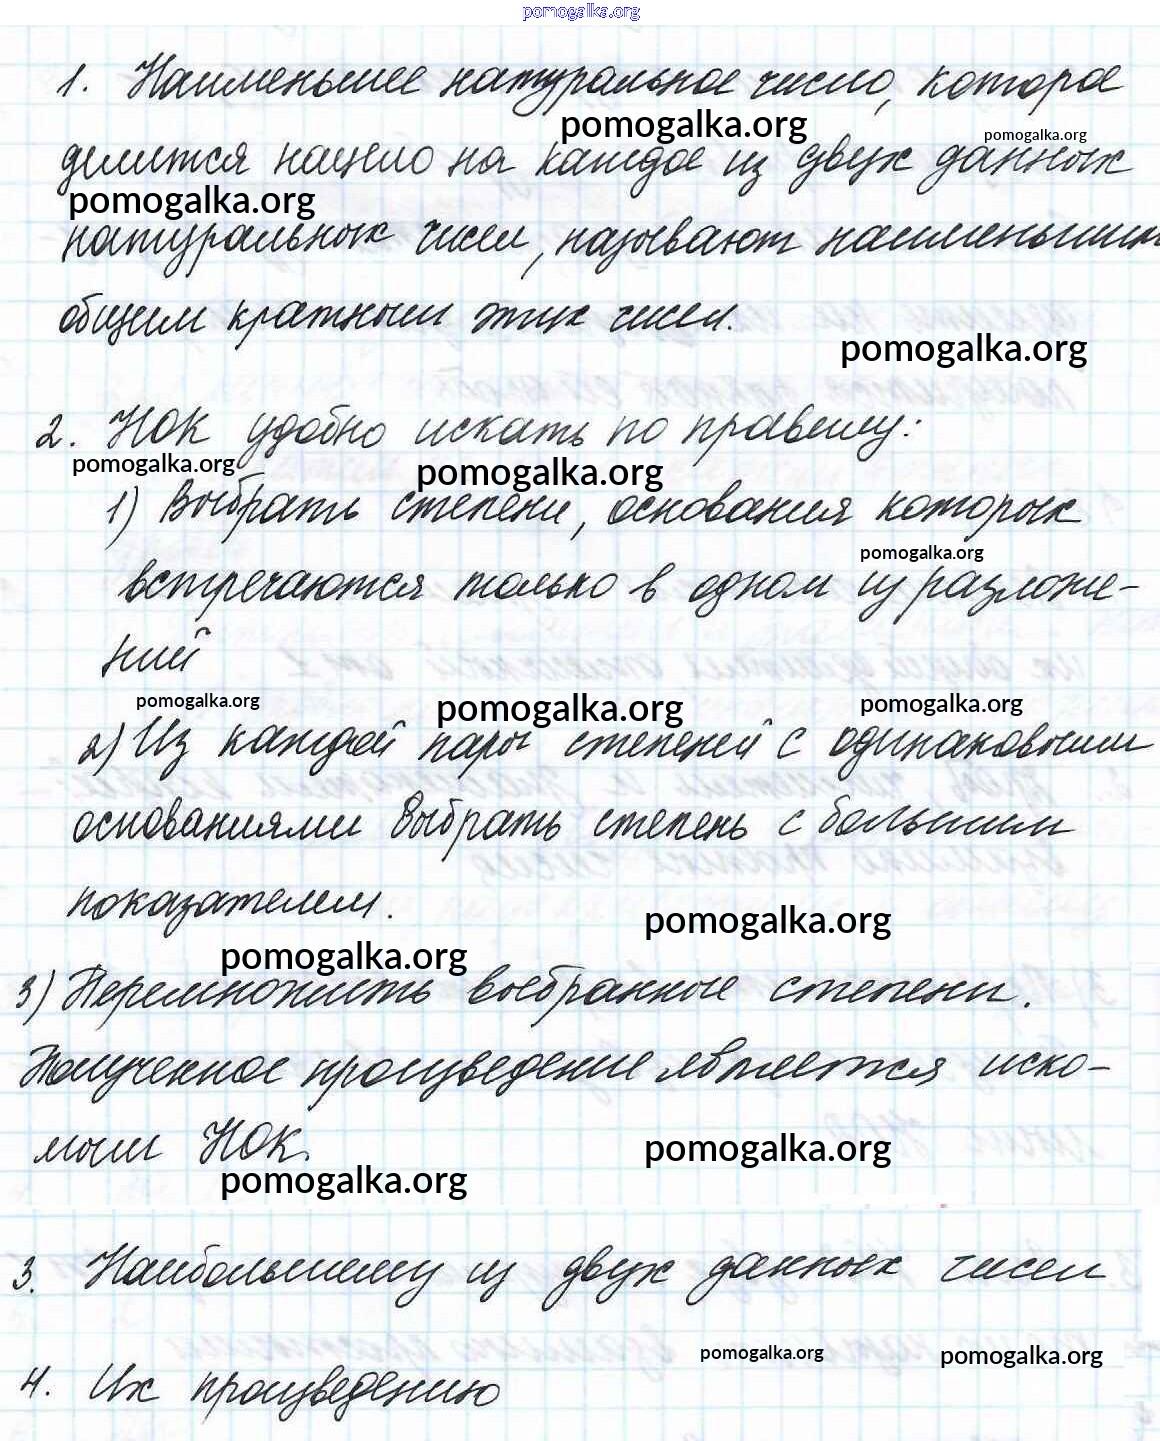 pomogalka.org
1. Наименьшее натуральное число, которое
pomogalka.org pomogalka.org
делится нацело на каждое из двух данных
pomogalka.org
натуральных чисел, называют наименьшим
общим кратным этих чисел.
pomogalka.org
2. НОК удобно искать по правилу:
pomogalka.org pomogalka.org
1) Выбрать степени, основания которых
pomogalka.org
встречаются только в одном из разложе-
ний
pomogalka.org pomogalka.org pomogalka.org
2) Из каждой пары степеней с одинаковыми
основаниями выбрать степень с большим
показателем.
pomogalka.org
pomogalka.org
3) Перемножить выбранные степени.
Полученное произведение является иско-
мым НОК.
pomogalka.org
pomogalka.org
3. Наибольшему из двух данных чисел
pomogalka.org pomogalka.org
4. Их произведению